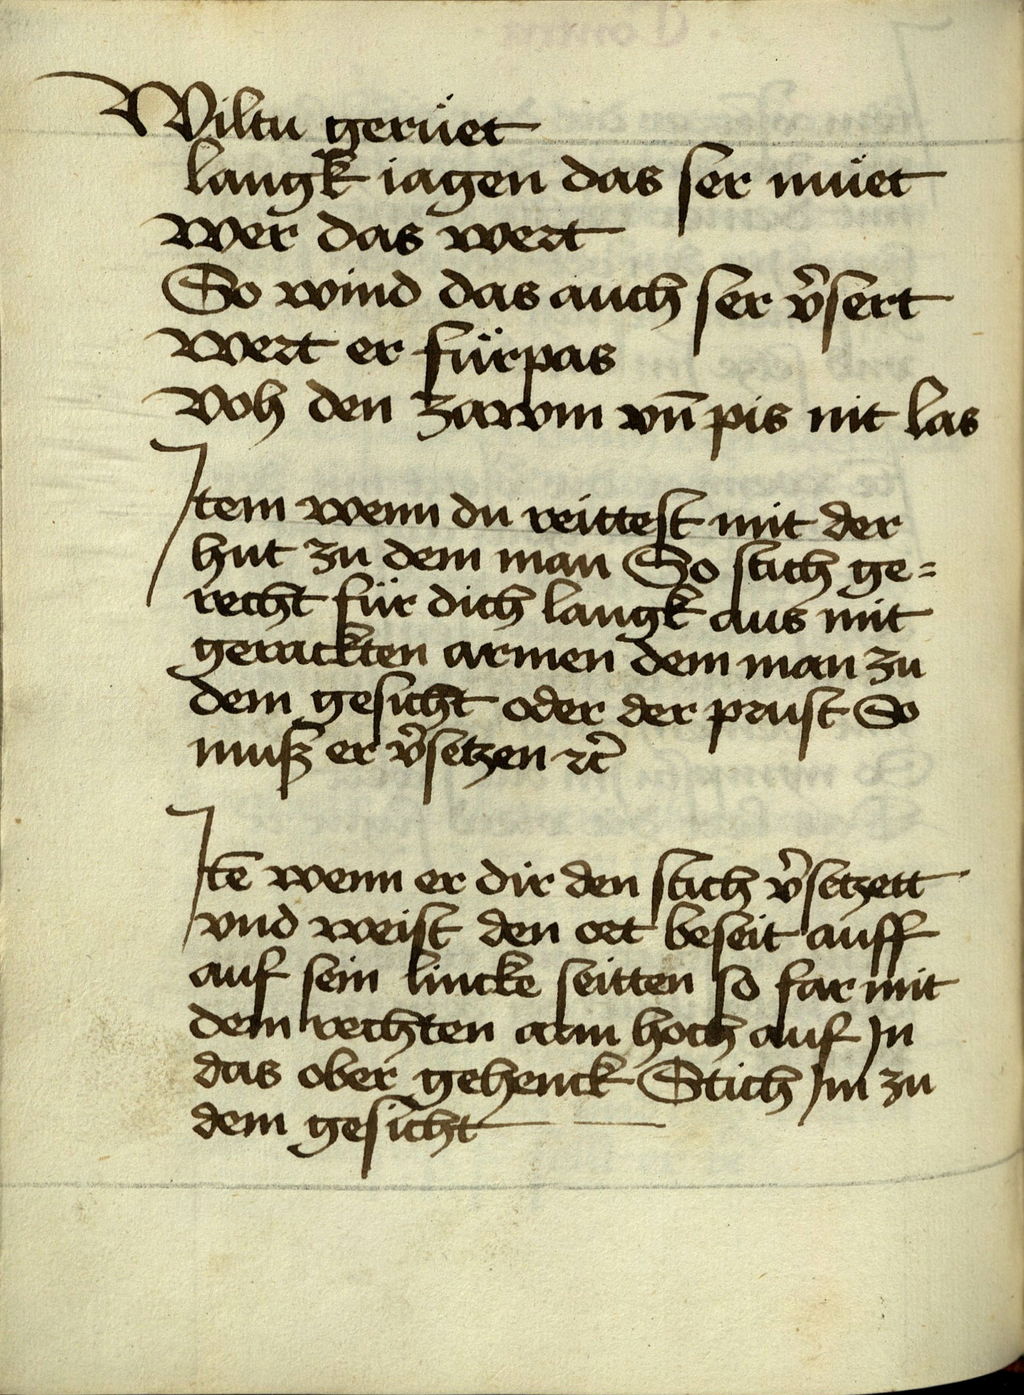 Wiltu gerüet
langk iagen das ser müet
wer das wert
So wind das auch ser v̾sert
wert er fürpas
Voh den zawm vn̄ pis nit las
Item wenn du reittest mit der
hut zu dem man So stich ge=
recht für dich langk aus mit
gerackten armen dem man zu
dem gesicht oder der prust So
muß er v̾setzen ⁊c̾
Itē wenn er dir den stich v̾setzett
vnd weist den ort beseit auff
auf sein lincke seitten so far mit
dem rechten arm hoch auf Jn
das ober gehenck Stich Jm zu
dem gesicht